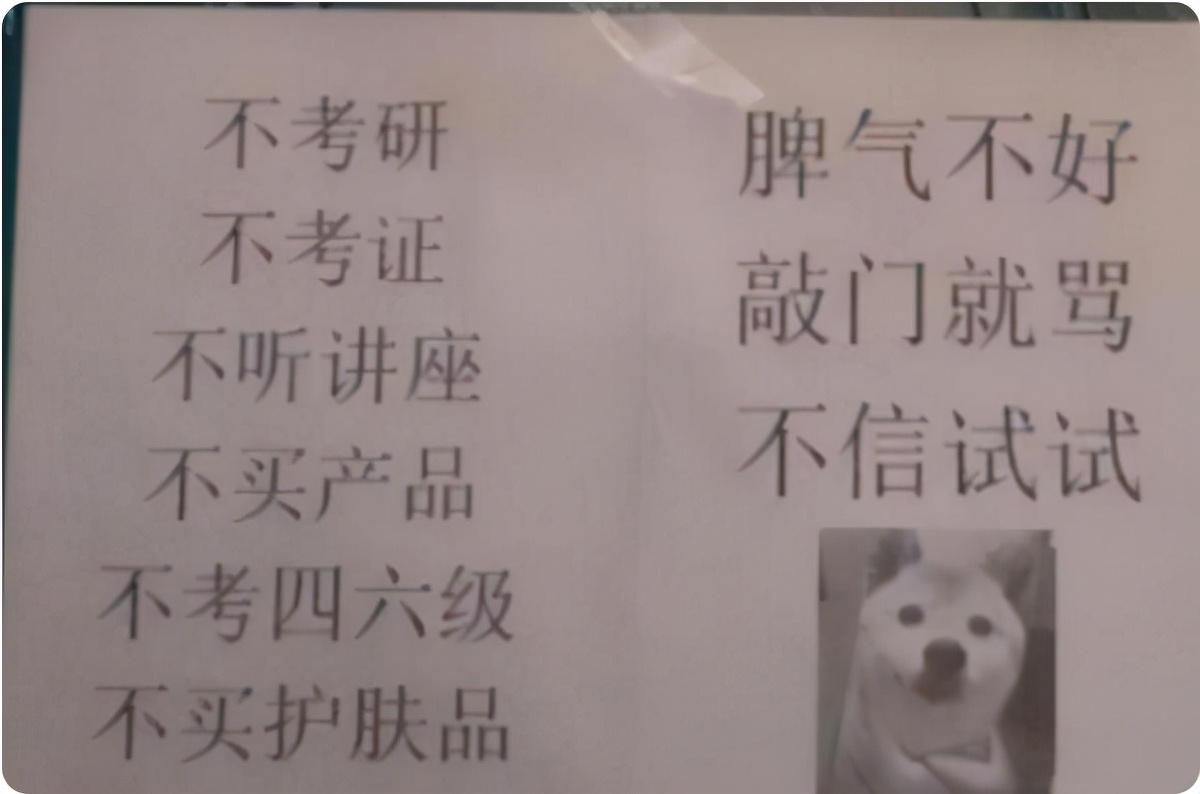 不考研
不考证
不听讲座
不买产品
不考四六级
不买护肤品
脾气不好
敲门就骂
不信试试